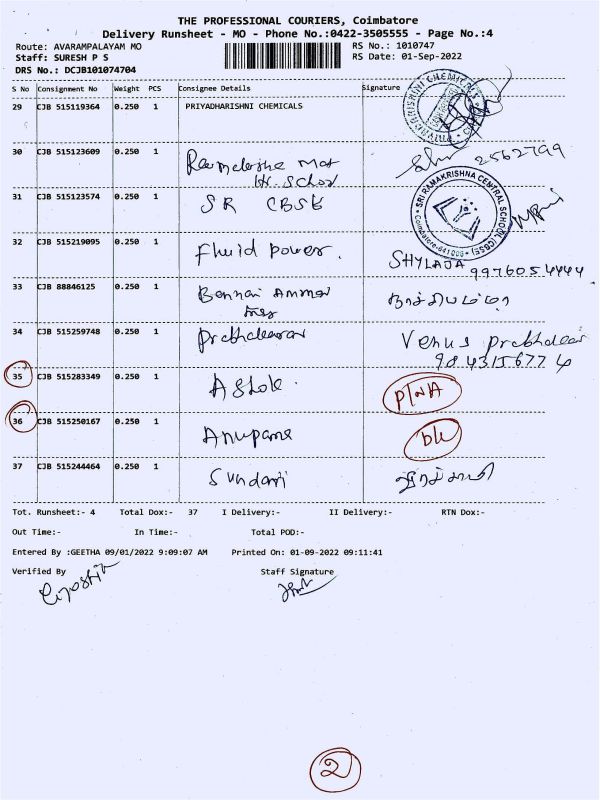 THE PROFESSIONAL COURIERS, Coimbatore
Delivery Runsheet - MO - Phone No.:0422-3505555 - Page No.:4
Route: AVARAMPALAYAM MO RS No.: 1010747
Staff: SURESH P S RS Date: 01-Sep-2022
DRS No.: DCJB101074704
S No Consignment No Weight PCS Consignee Details Signature
29 CJB 515119364 0.250 1 PRIYADHARISHNI CHEMICALS
30 CJB 515123609 0.250 1 Mat 2562799
Hr. School
31 CJB 515123574 0.250 1 SR CBSE SRI RAMAKRISHNA CENTRAL SCHOOL (CBSE) Coimbatore-641006
32 CJB 515219095 0.250 1 Fluid Power. SHYLAJA 9976054444
33 CJB 88846125 0.250 1 Bannari Amman
34 CJB 515259748 0.250 1 Prabhakaran Venus Prabhakar
9843156774
35 CJB 515283349 0.250 1 Ashok. P/NA
36 CJB 515250167 0.250 1 Anupama DL
37 CJB 515244464 0.250 1 Sundari
Tot. Runsheet:- 4 Total Dox:- 37 I Delivery:- II Delivery:- RTN Dox:-
Out Time:- In Time:- Total POD:-
Entered By :GEETHA 09/01/2022 9:09:07 AM Printed On: 01-09-2022 09:11:41
Verified By Staff Signature
2